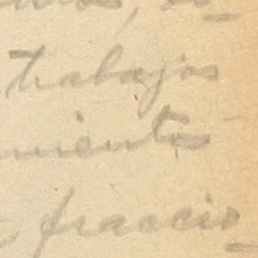 trabajos
mientos
fraccio